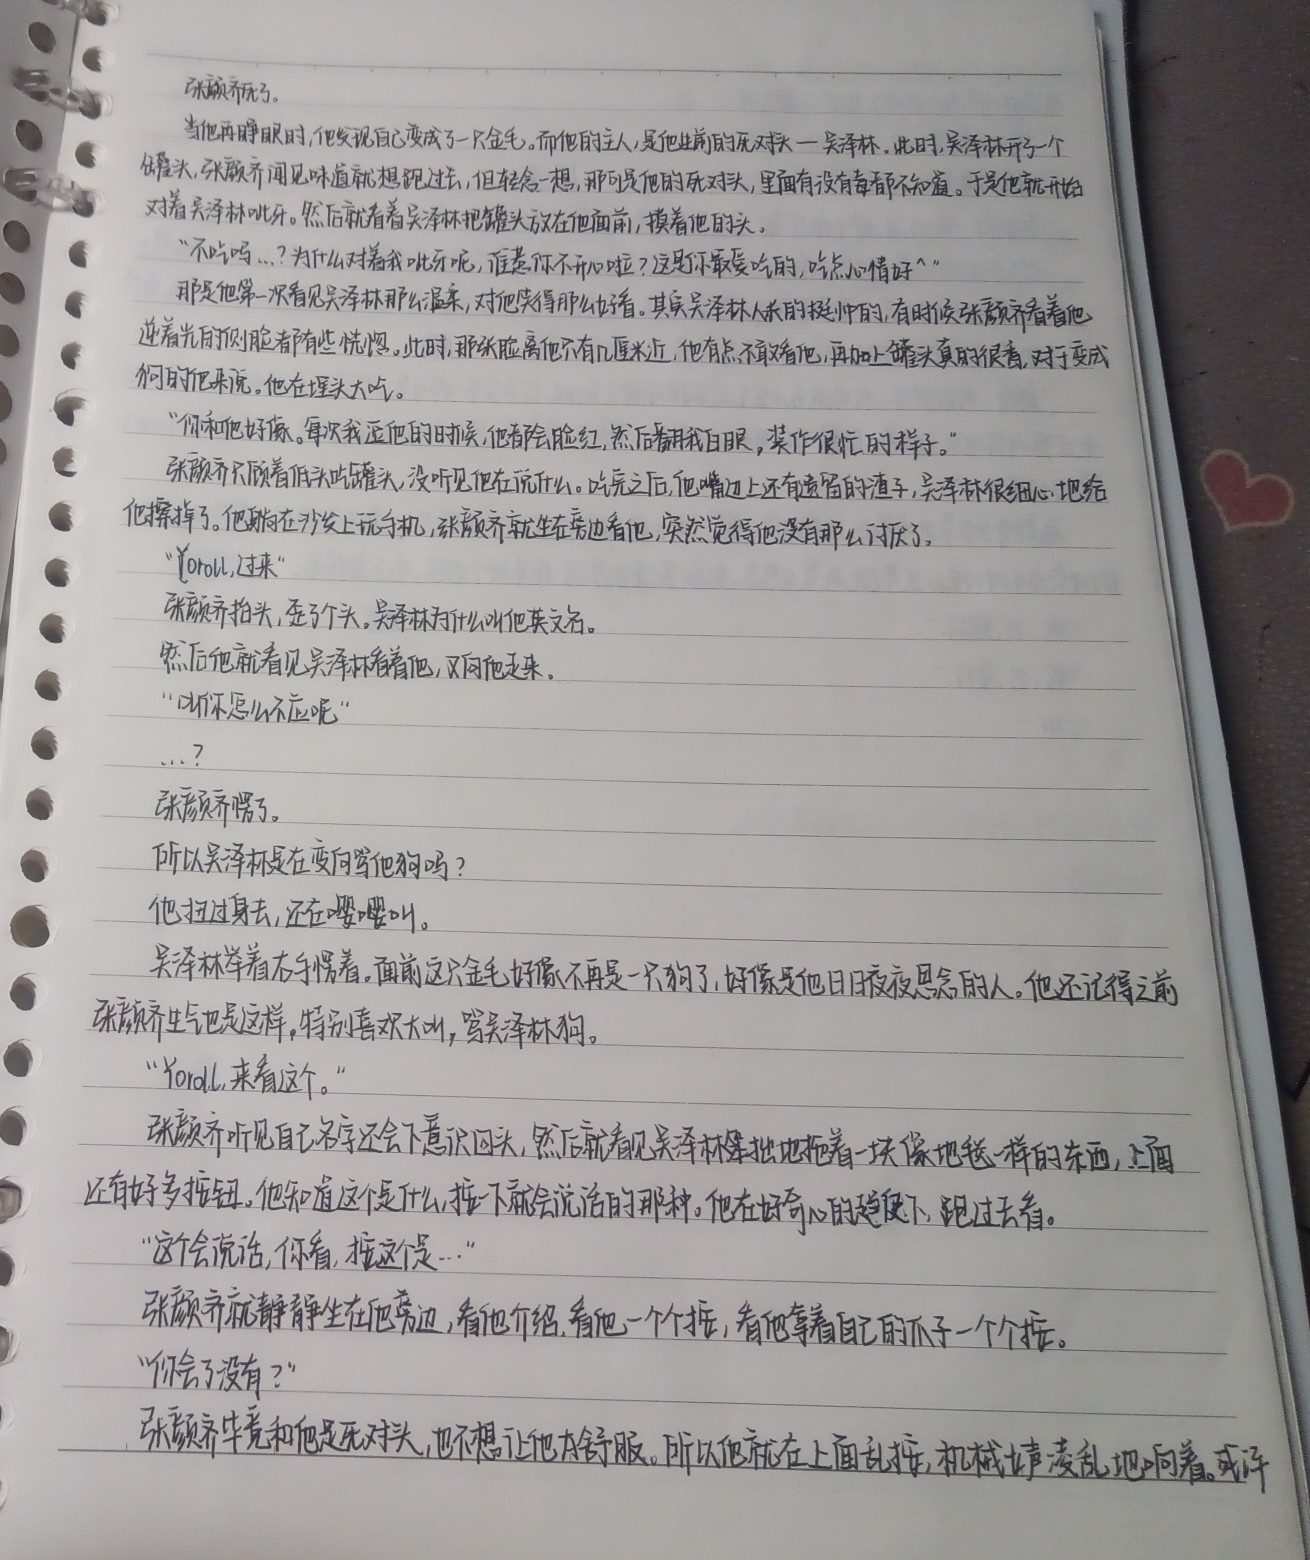 张颜齐死了。
当他再睁眼时，他发现自己变成了一只金毛。而他的主人，是他生前的死对头—吴泽林。此时，吴泽林开了一个
罐头，张颜齐闻见味道就想跑过去，但轻念一想，那可是他的死对头，里面有没有毒都不知道。于是他就开始
对着吴泽林呲牙。然后就看着吴泽林把罐头放在他面前，摸着他的头。
“不吃吗…？为什么对着我呲牙呢，谁惹你不开心啦？这是你最爱吃的，吃点心情好^”
那是他第一次看见吴泽林那么温柔，对他笑得那么好看。其实吴泽林人长的挺帅的，有时候张颜齐看着他
逆着光的侧脸都有些恍惚。此时，那张脸离他只有几厘米近，他有点不敢看他，再加上罐头真的很香，对于变成
狗的他来说。他在埋头大吃。
“你和他好像。每次我逗他的时候，他都会脸红，然后翻我白眼，装作很忙的样子。”
张颜齐只顾着低头吃罐头，没听见他在说什么。吃完之后，他嘴边上还有遗留的渣子，吴泽林很细心地给
他擦掉了。他躺在沙发上玩手机，张颜齐就坐在旁边看他，突然觉得他没有那么讨厌了。
“Yoroll，过来“
张颜齐抬头，歪了个头。吴泽林为什么叫他英文名。
然后他就看见吴泽林看着他，又向他走来。
“叫你怎么不应呢“
…？
张颜齐愣了。
所以吴泽林是在变向骂他狗吗？
他扭过身去，还在嘤嘤叫。
吴泽林举着右手愣着。面前这只金毛好像不再是一只狗了，好像是他日日夜夜思念的人。他还记得之前
张颜齐生气也是这样，特别喜欢大叫，骂吴泽林狗。
“Yoroll，来看这个。”
张颜齐听见自己名字还会下意识回头，然后就看见吴泽林笨拙地拖着一块像地毯一样的东西，上面
还有好多按钮。他知道这个是什么，按一下就会说话的那种。他在好奇心的趋使下，跑过去看。
“这个会说话，你看，按这个是…“
张颜齐就静静坐在他旁边，看他介绍，看他一个个按，看他拿着自己的爪子一个个按。
“你会了没有？”
张颜齐毕竟和他是死对头，也不想让他太舒服。所以他就在上面乱按，机械声凌乱地响着。或许